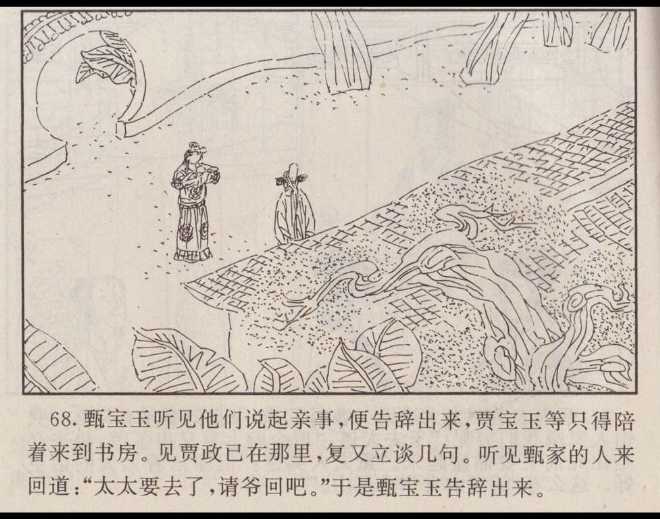 68. 甄宝玉听见他们说起亲事，便告辞出来，贾宝玉等只得陪
着来到书房。见贾政已在那里，复又立谈几句。听见甄家的人来
回道：“太太要去了，请爷回吧。”于是甄宝玉告辞出来。